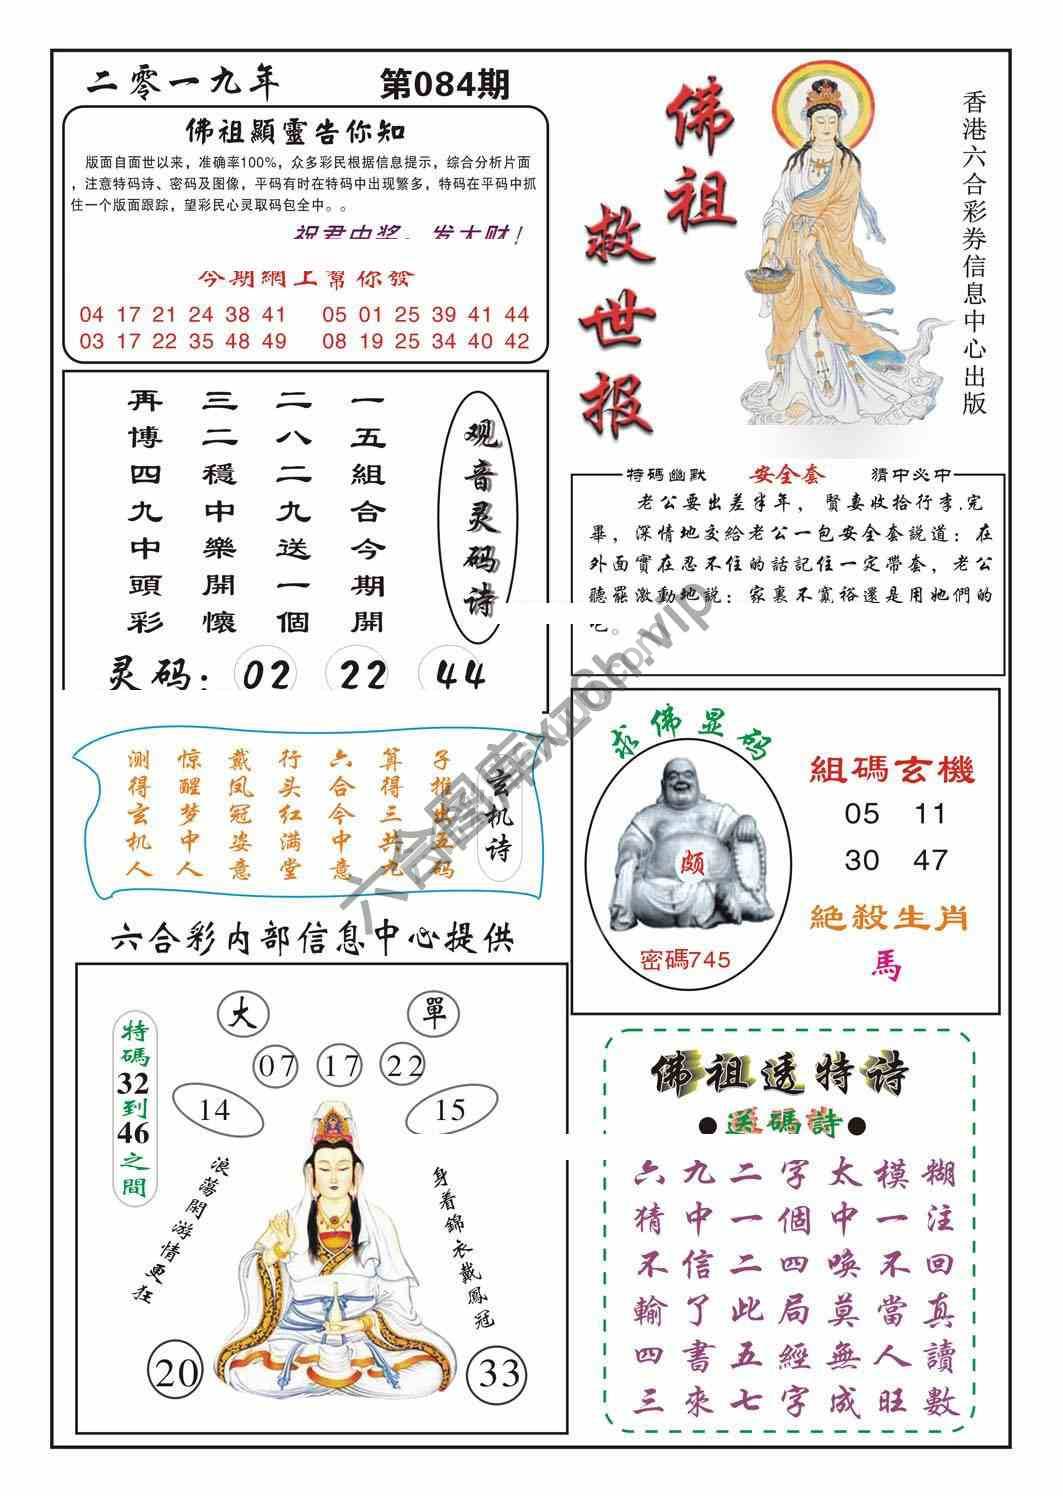 二零一九年
第084期
佛祖顯靈告你知
版面自面世以来，准确率100%，众多彩民根据信息提示，综合分析片面
，注意特码诗、密码及图像，平码有时在特码中出现繁多，特码在平码中抓
住一个版面跟踪，望彩民心灵取码包全中。。
祝君中奖，发大财！
今期網上幫你發
04 17 21 24 38 41
05 01 25 39 41 44
03 17 22 35 48 49
08 19 25 34 40 42
佛祖
救世报
香港六合彩券信息中心出版
观音灵码诗
一五組合今期開
二八二九送一個
三二穩中樂開懷
再博四九中頭彩
灵码：
02
22
44
特碼幽默
安全套
猜中必中
老公要出差半年，賢妻收拾行李.完
畢，深情地交給老公一包安全套説道：在
外面實在忍不住的話記住一定帶套，老公
聽罷激動地説：家裏不寬裕還是用她們的
吧。
玄机诗
子推出五码
算得三共九
六合今中意
行头红满堂
戴凤冠姿意
惊醒梦中人
测得玄机人
六合图库xz6h.vip
求佛显码
颇
密碼745
組碼玄機
05 11
30 47
絕殺生肖
馬
六合彩内部信息中心提供
大
單
07
17
22
14
15
特碼32到46之間
浪蕩閑游情更狂
身着錦衣戴鳳冠
20
33
佛祖透特诗
●送碼詩●
六九二字太模糊
猜中一個中一注
不信二四喚不回
輸了此局莫當真
四書五經無人讀
三來七字成旺數